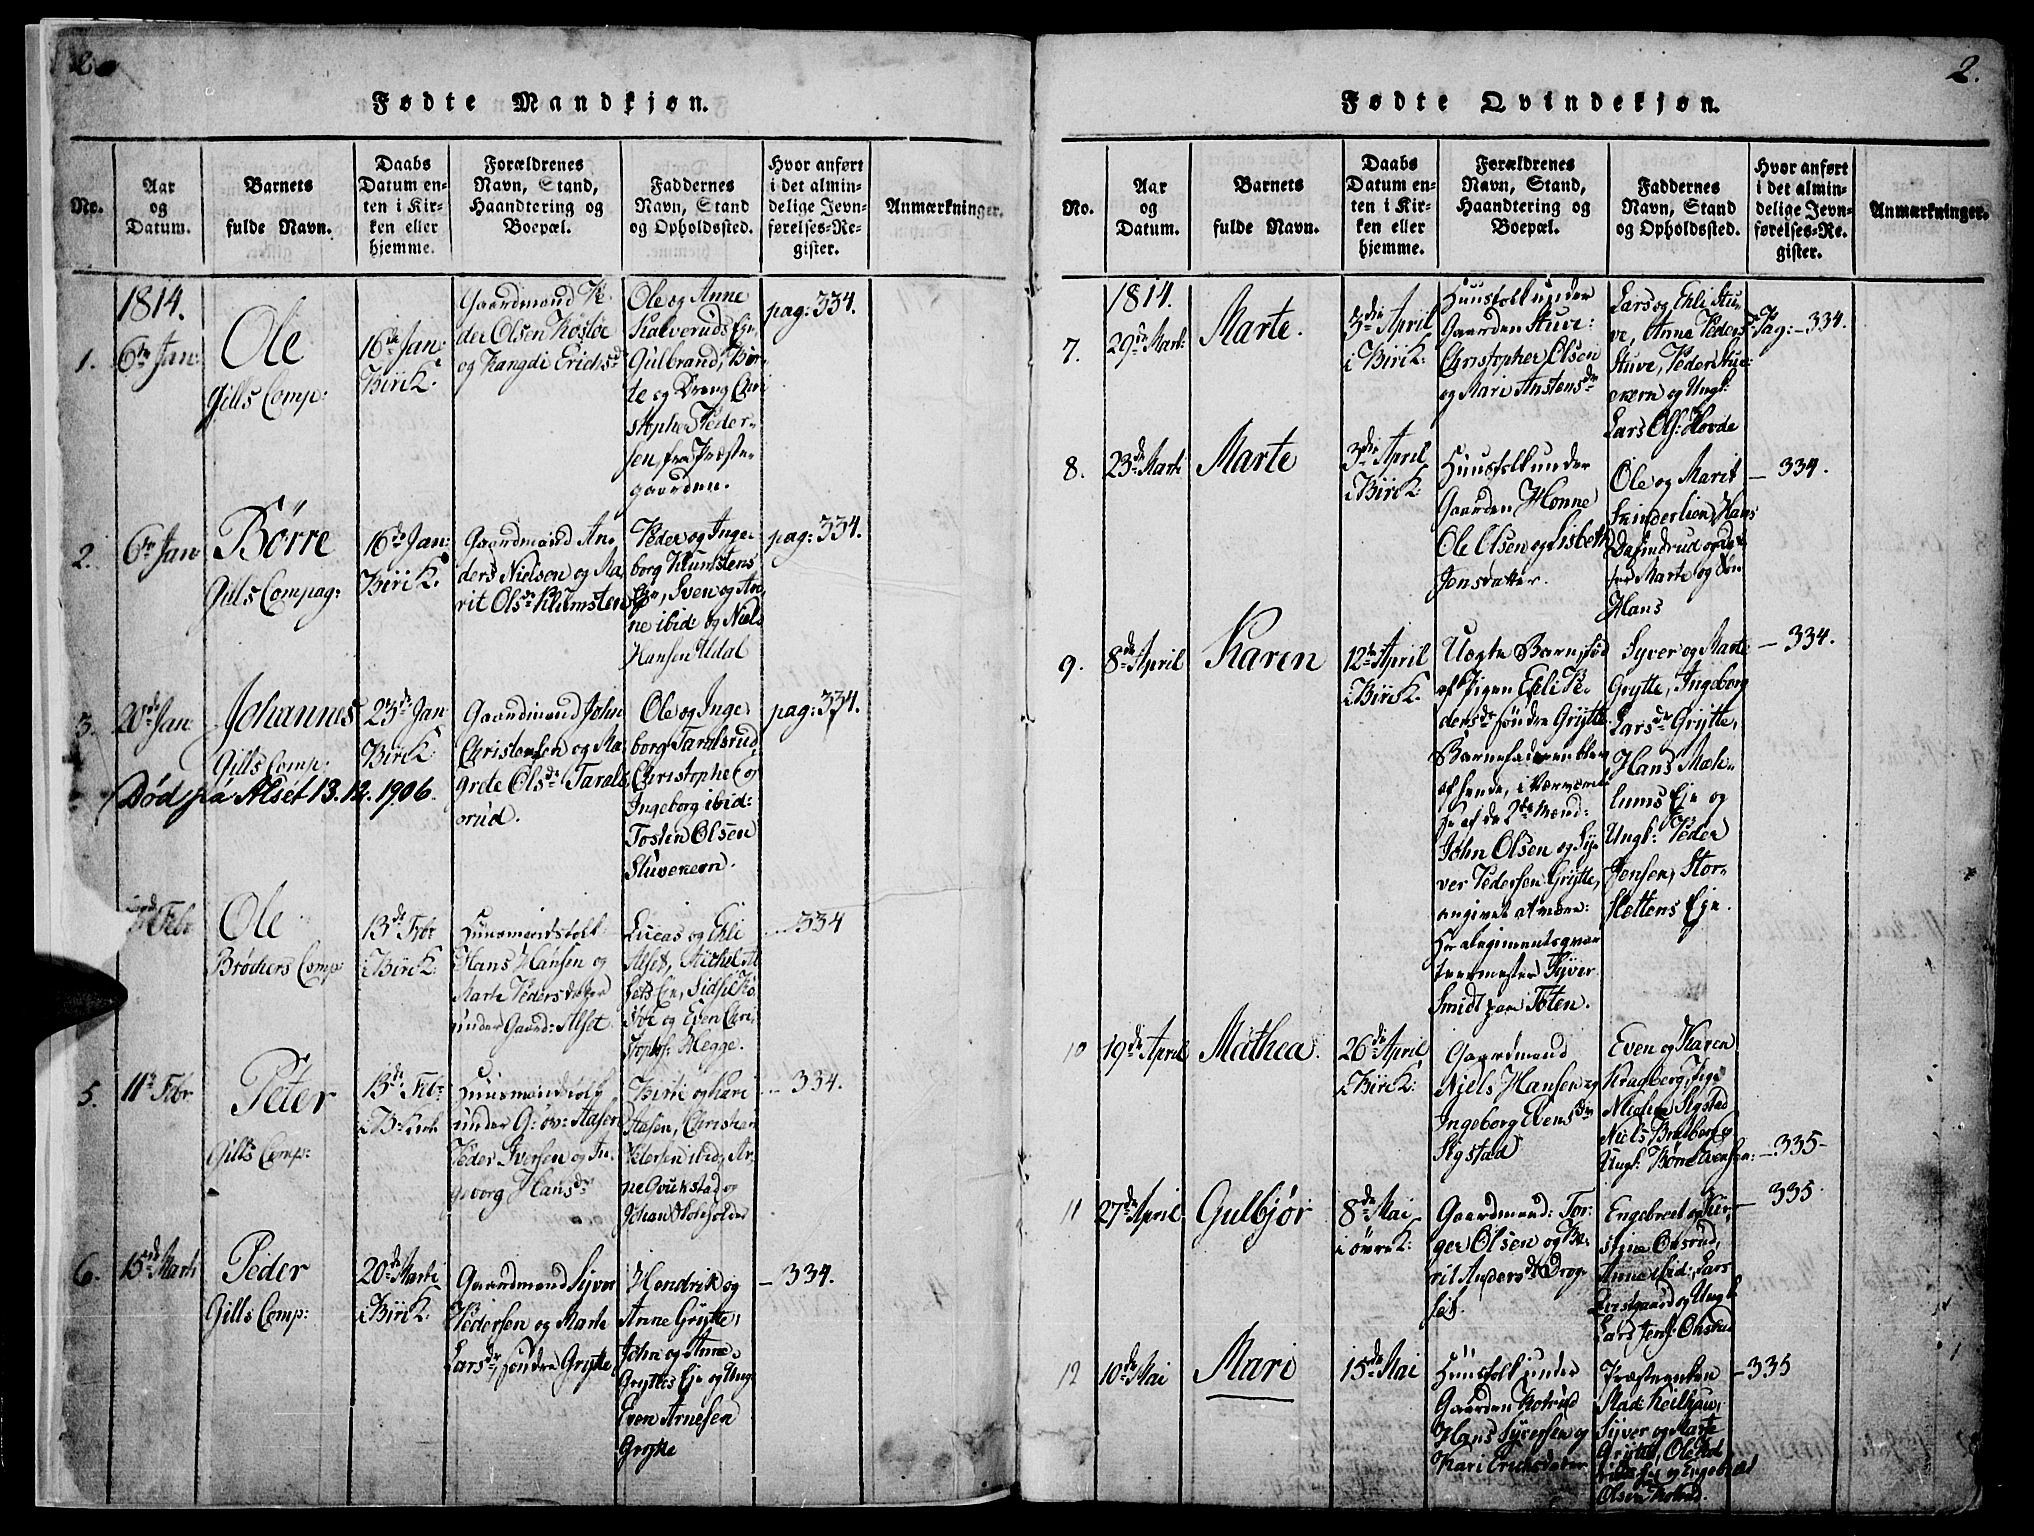 2
Fødte Mandkjøn.
No.
Aar
og
Datum.
Barnets
fulde Navn.
Daabs
Datum en-
ten i Kir-
ken eller
hjemme.
Forældrenes
Navn, Stand,
Haandtering og
Boepæl.
Faddernes
Navn, Stand
og Opholdssted.
Hvor anført
i det almin-
delige Jevn-
førelses-Re-
gister.
Anmærkninger.
1814.
1.
6te Jan:
Ole
Gills Comp:
16de Jan:
Biri K:
Gaardmand Pe-
der Olsen Kostøe
og Rangdi Erichsdr
Ole og Anne
Kalveruds Eje,
Gulbrand, Bør-
te og Dreng Chri
stopher Peder-
sen, fra Præste-
gaarden.
pag: 334.
2.
6te Jan
Børre
Gills Compag:
16de Jan:
Biri K:
Gaardmand An-
ders Nielsen og Ma-
rit Olsdr Klumsten
Peder og Inge-
borg Klumstens
Eje, Sven og An-
ne ibid: og Niels
Hansen Udal
pag: 334.
3.
20de Jan
Johannes
Gills Comp:
Død på Alset 13.12.1906.
23de Jan
Biri K:
Gaardmand John
Christensen og Ma-
grete Olsdr Tarals-
orud.
Ole og Inge-
borg Taralsrud,
Christophe og
Ingeborg ibid:
Tosten Olsen
Stuvenern.
pag: 334.
Febr
Ole
Brøchers Comp:
13de Febr
i Biri K:
Huusmandsfolk
Hans Hansen og
Marte Pedersdatter
under Gaard: Alset.
Lucas og Ehli
Alset, Michel Al-
sets Eje, Sidsel Ko-
støe og Even Chri-
stophs: Hegge.
— 334
5.
11te Febr
Peter
Gills Comp:
13de Febr
i B: Kirk
Huusmandsfolk
under G: øv: Aasen
Peder Iversen og In-
geborg Hansdr
Birte og Kari
Aasen, Christian
Petersen ibid, Ar-
ne Gviikstad og
Johan Stokholder
— 334.
6.
15de Marti
Peder
Gills Comp:
20de Marti
i Biri K:
Gaardmand Syver
Pedersen og Marte
Larsdr, søndre Grytte,
Hendrik og
Anne Grytte,
John og Anne
Gryttes Eje og Ung
Even Arnesen
Grytte
— 334.
2.
Fødte Qvindekjøn.
No.
Aar
og
Datum.
Barnets
fulde Navn.
Daabs
Datum en-
ten i Kir-
ken eller
hjemme.
Forældrenes
Navn, Stand,
Haandtering og
Boepæl.
Faddernes
Navn, Stand
og Opholdssted.
Hvor anført
i det almin-
delige Jevn-
førelses-Re-
gister.
Anmærkninger.
1814.
7.
29de Mart:
Marte.
3die April
i Biri K:
Huusfolk under
Gaarden Stuve:
Christopher Olsen
og Mari Anstensdr
Lars og Ehli Stu-
ve, Anne Pedersdr
Stuve, Peder Stuv-
enern og Ungk:
Lars Ols: Hovde
Pag: — 334.
8.
23de Marti
Marte
3die April
i Biri K:
Huusfolk under
Gaarden Honne
Ole Olsen og Lisbeth
Jensdatter.
Ole og Marit
Skinderlien, Hans
Dafindrud og
Marte og Søn
Hans
— 334.
9.
8de April
Karen
12te April
i Biri K:
Uægte Barn, fød
af Pigen Ehli Pe-
dersdr søndre Grytte.
Barnefaderen blev
af hende, i Nærværel-
se af de 2de Mænd:
John Olsen og Sy-
ver Pedersen Grytte,
angivet at være:
Hr Regimentsqvar
teermester Syver
Smidt paa Toten.
Syver og Marte
Grytte, Ingeborg
Larsdr Grytte,
Hans Mæh-
lums Eje og
Ungk: Peder
Jensen, Stor-
slettens Eje.
— 334.
10
19de April
Mathea.
26de April
i Biri K:
Gaardmand
Niels Hansen og
Ingeborg Evensdr
Sigstad
Even og Karen
Kragberg, Pige
Sigstad
Niels Bratberg og
Ungk: Børre Evensen:
— 335 —
11
27de April
Gulbjør
8de Mai
i øvre K:
Gaardmand: Tor-
ger Olsen og Be-
rit Andersdr Drog-
set.
Engebret og Kir-
stine Onsrud,
Anne ibid:, Lars
Evistgaard og Ungk
Lars Jens: Onsrud
— 335
12
10de Mai
Mari
15de Mai
Huusfolk under
Gaarden Kotrud
Hans Syversen og
Kari Erichsdatter
Præsteenken
Mad: Keilhau,
Syver og Marte
Grytte, Ole Kot-
ruds Eje og Engebret
Olsen Kotrud.
— 335